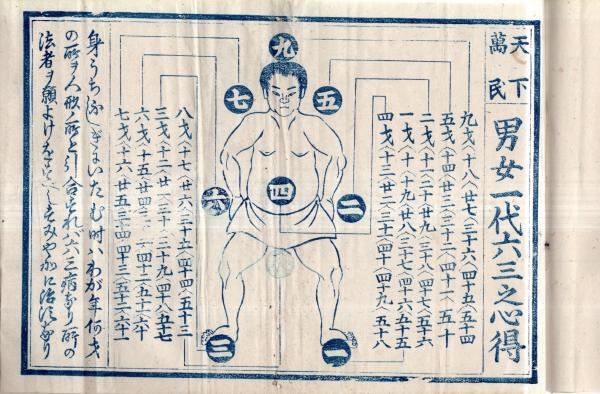 天下
萬民
男女一代六三之心得
九才〈十八〈廿七〈三十六〈四十五〈五十四
五才〈十四〈廿三〈三十二〈四十一〈五十
二才〈十一〈二十〈廿九〈三十八〈四十七〈五十六
一才〈十〈十九〈廿八〈三十七〈四十六〈五十五
四才〈十三〈廿二〈三十一〈四十〈四十九〈五十八
九
五
七
二
四
六
一
三
八才〈十七〈廿六〈三十五〈四十四〈五十三
三才〈十二〈廿一〈三十〈三十九〈四十八〈五十七
六才〈十五〈廿四〈 四十二〈五十一〈六十
七才〈十六〈廿五〈三十四〈四十三〈五十二〈六十一
身うちふしぎにいたむ時ハわが年何才
の所ヲ人形ノ所と引合 れバ六三病なり所の
法者ヲ頼よけを すみやかに治 なり